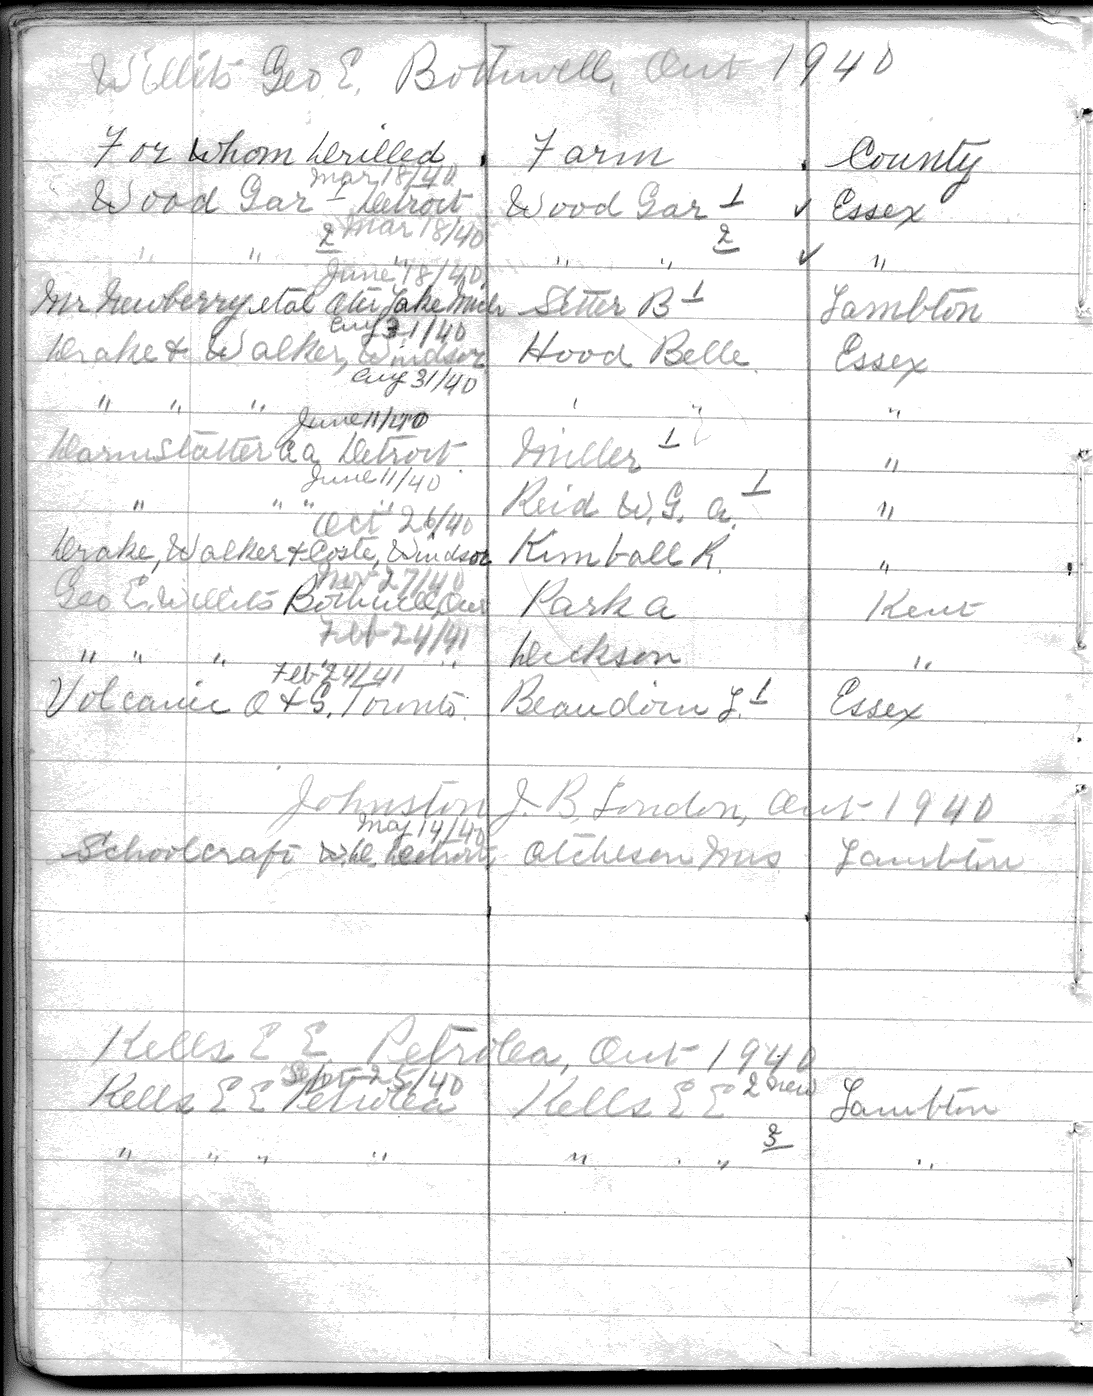 Willits Geo E. Bothwell, Ont 1940
For Whom Drilled Farm County
Mar 18/40
Wood Gar 1 Detroit Wood Gar 1 ✓ Essex
2 Mar 18/40 2
" " " " ✓ "
June 18/40
Mr Newberry et al Otter Lake Mich Setter B 1 Lambton
Aug 31/40
Drake & Walker, Windsor Hood Belle Essex
Aug 31/40
" " " " " "
June 11/40
Darmstatter C A Detroit Miller 1 "
June 11/40
" " " " Reid W. G. A. 1 "
Oct 26/40
Drake, Walker & Coste, Windsor Kimball R. "
27/40
Geo E. Willits Bothwell, Ont Park A Kent
Feb 24/41
" " " " Dickson "
Feb 24/41
Volcanic O & G. Toronto. Beaudoin L. 1 Essex
Johnston J. B. London, Ont 1940
May 14/40
Schoolcraft W. D. Detroit, Atcheson Mrs Lambton
Kells E E Petrolea, Ont 1940
Sept 25/40
Kells E E Petrolea Kells E E 2 new Lambton
3
" " " " " " " "